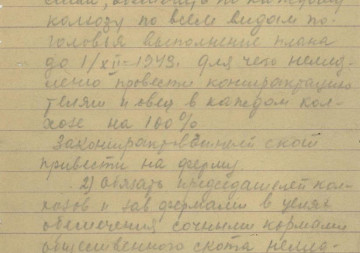 колхозу по всем видам по-
головья выполнение плана
до 1/XII-1943г. для чего немед-
ленно провести контрактацию
телят и овец в каждом кол-
хозе на 100%
Законтрактованный скот
привести на ферму.
2) Обязать председателей кол-
хозов и зав. фермами в целях
обеспечения сочными кормами
общественного скота немед-